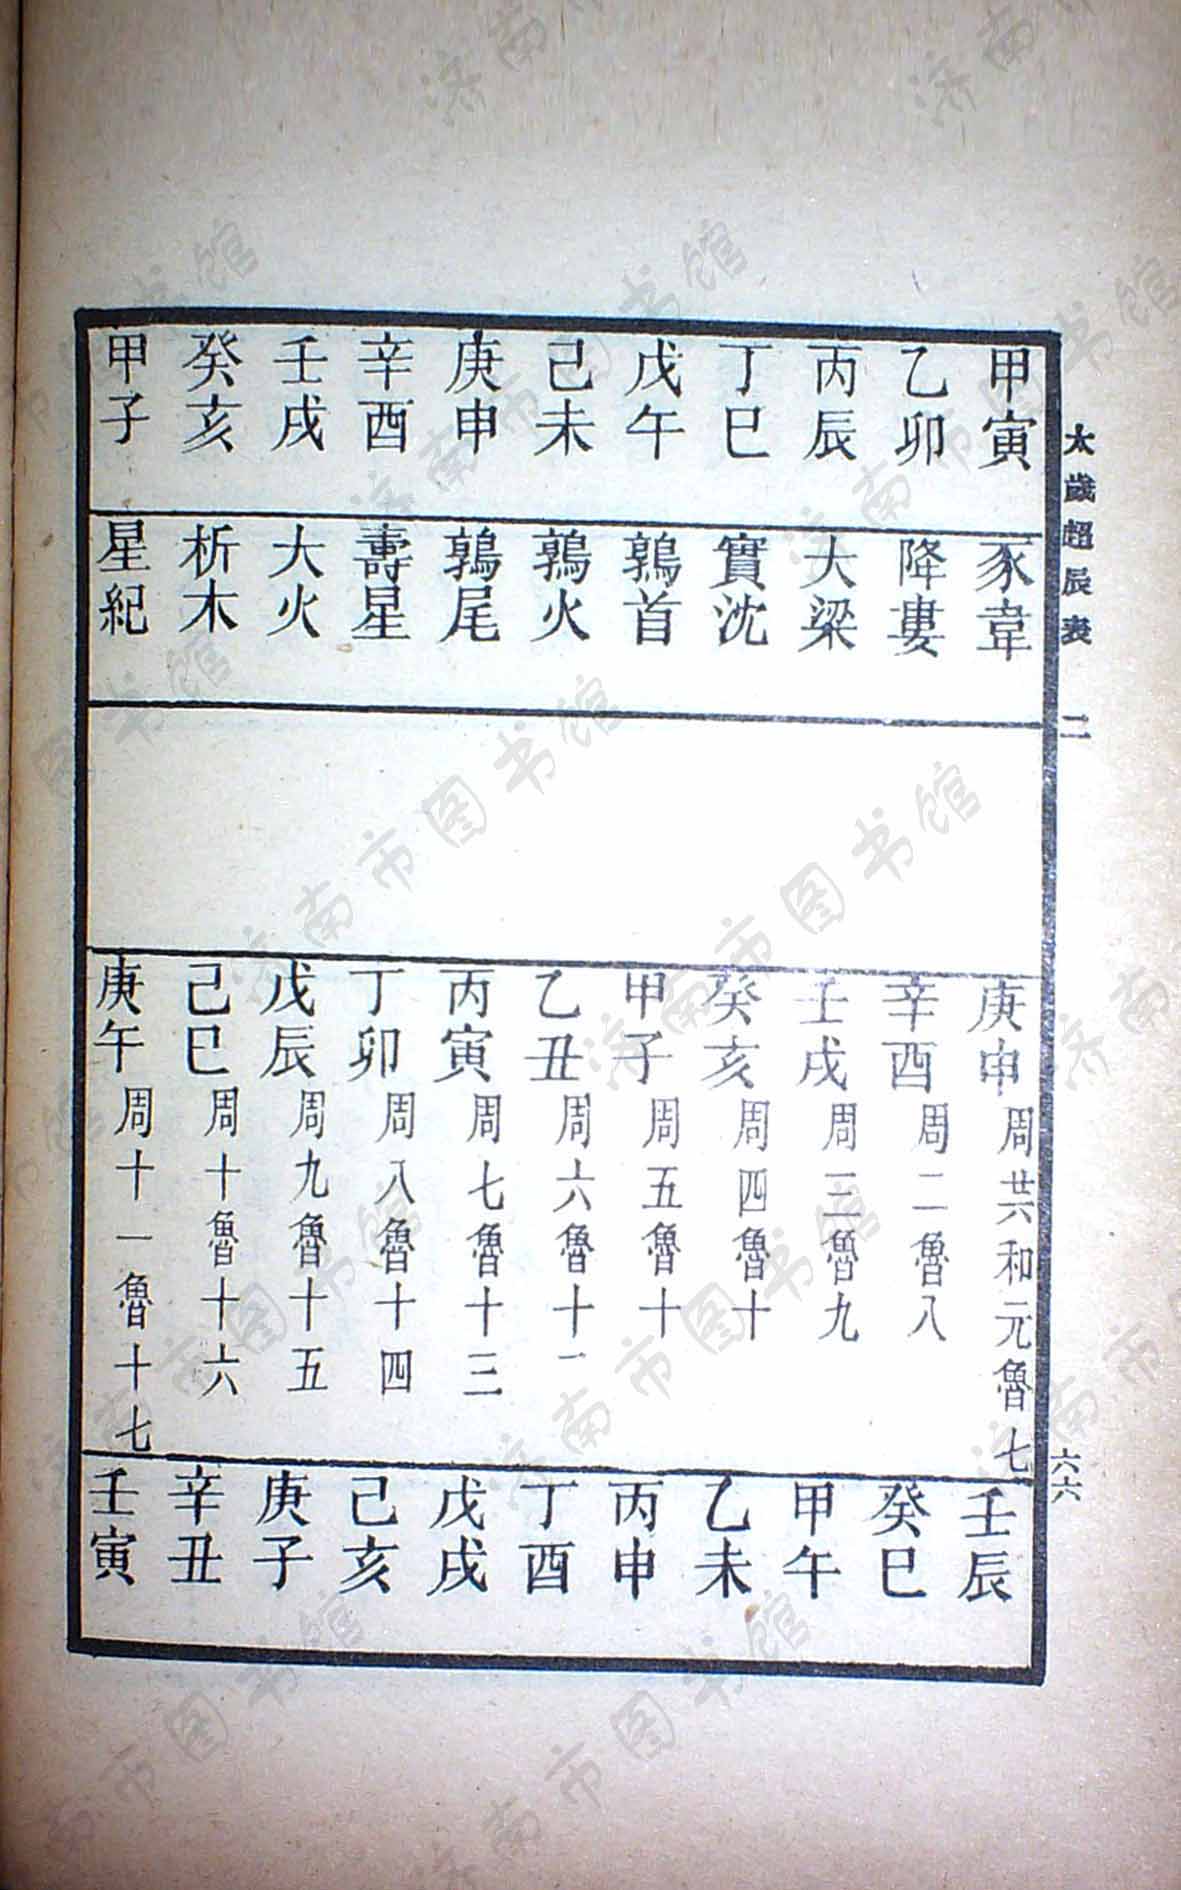 太歲超辰表 二 六六
甲寅 豕韋 庚申 周共和元魯七 壬辰
乙卯 降婁 辛酉 周二魯八 癸巳
丙辰 大梁 壬戌 周三魯九 甲午
丁巳 實沈 癸亥 周四魯十 乙未
戊午 鶉首 甲子 周五魯十 丙申
己未 鶉火 乙丑 周六魯十一 丁酉
庚申 鶉尾 丙寅 周七魯十三 戊戌
辛酉 壽星 丁卯 周八魯十四 己亥
壬戌 大火 戊辰 周九魯十五 庚子
癸亥 析木 己巳 周十魯十六 辛丑
甲子 星紀 庚午 周十一魯十七 壬寅
济南市图书馆